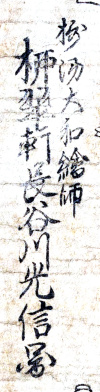 摂陽大和繪師
柳翠軒長谷川光信圖